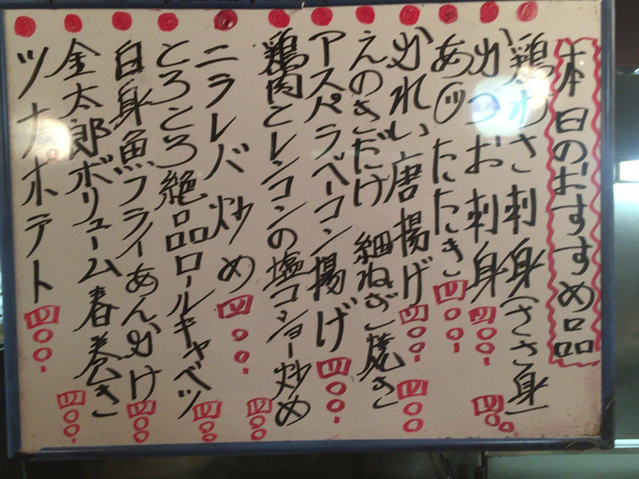 本日のおすすめ品
鶏わさ刺身(ささ身) 四〇〇
かつお刺身 四〇〇
あジたたき 四〇〇
かれい唐揚げ 四〇〇
えのきだけ 細ねぎ焼き 四〇〇
アスパラベーコン揚げ 四〇〇
鶏肉とレンコンの塩コショー炒め 四〇〇
ニラレバ炒め 四〇〇
ところころ絶品ロールキャベツ 四〇〇
白身魚フライあんかけ 四〇〇
金太郎ボリューム春巻き 四〇〇
ツナポテト 四〇〇